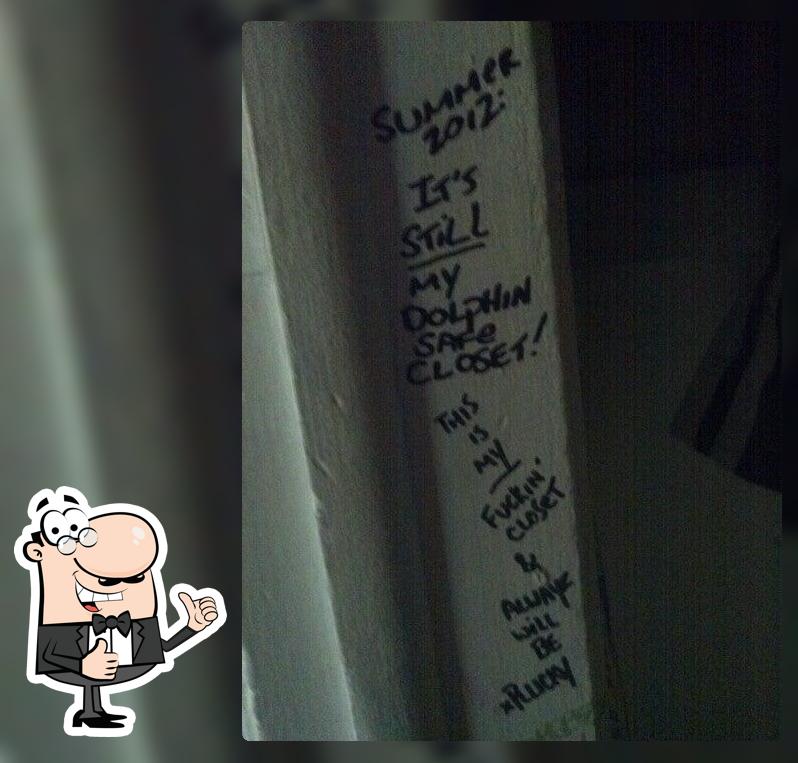 SUMMER
2012:
IT'S
STILL
MY
DOLPHIN
SAFE
CLOSET!
THIS
IS
MY
FUCKIN'
CLOSET
&
ALWAYS
WILL
BE
xPLUCKY